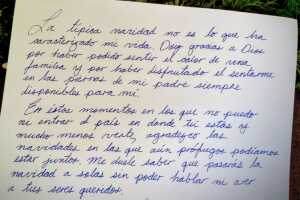 La típica navidad no es lo que ha
caracterizado mi vida. Doy gracias a Dios
por haber podido sentir el calor de una
familia y por haber disfrutado el sentarme
en las piernas de mi padre siempre
disponibles para mí.
En estos momentos en los que no puedo
ni entrar al país en donde tú estás y
mucho menos verte, agradezco las
navidades en las que aún prófugos podíamos
estar juntos. Me duele saber que pasarás la
navidad a solas sin poder hablar ni ver
a tus seres queridos.